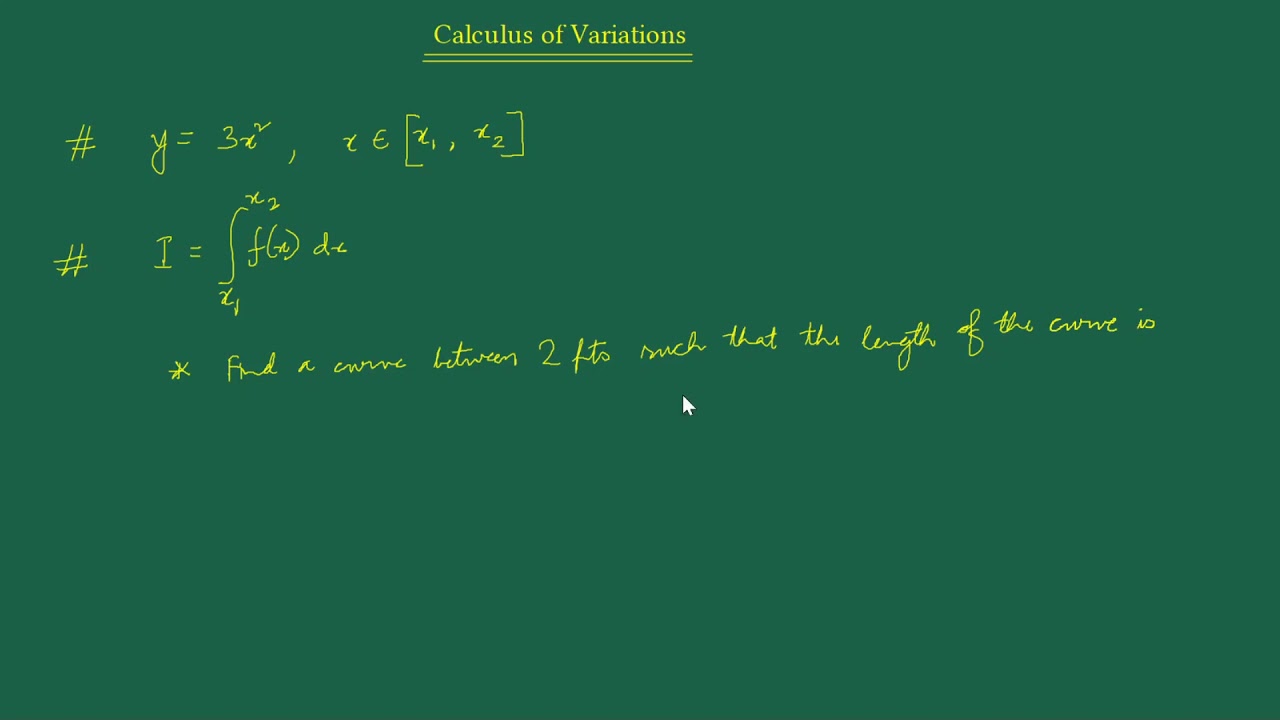 Calculus of Variations
# y = 3x², x ∈ [x₁, x₂]
# I = ∫_{x₁}^{x₂} f(x) dx
* Find a curve between 2 pts such that the length of the curve is